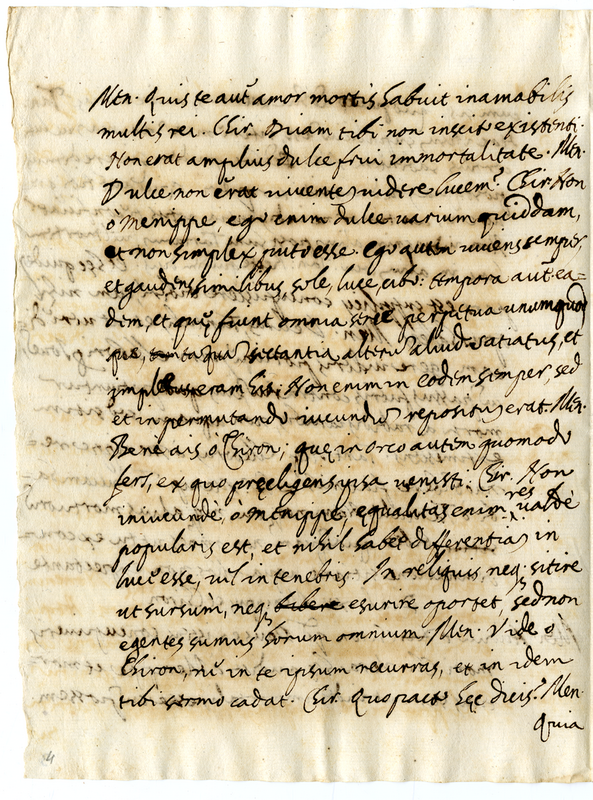 Men. Quis te aut̃ amor mortis habuit inamabilis
multis rei. Chir. Dicam tibi non inscito existenti.
Non erat amplius dulce frui immortalitate. Men.
Dulce non erat viventẽ videre lucem? Chir. Non
ò Menippe, ego enim dulce varium quiddam,
et non simplex puto esse. ego autem vivens semper,
et gaudens similibus sole, luce, cibo. tempora aut̃ ea=
dem, et quę fiunt omnia perpetua unumquod
alterũ aliud satiatus, et
eram his. Non enim in eodem semper, sed
et in permutando iucundũ repositũ erat. Men.
Bene ais ò Chiron; quę in orco autem quomodo
fers, ex quo pręeligens ipsa venisti. Chir. Non
iniucundè, ò Menippe, ęqualitas enim res valdè
popularis est, et nihil habet differentię in
luce esse, vel in tenebris. In reliquis neq. sitire
ut sursum, neq. bibere esurire oportet, sed non
egentes sumus horum omnium. Men. Vide ò
Chiron, ne in te ipsum recurras, et in idem
tibi sermo cadat. Chir. Quo pacto hęc dicis? Men.
Quia